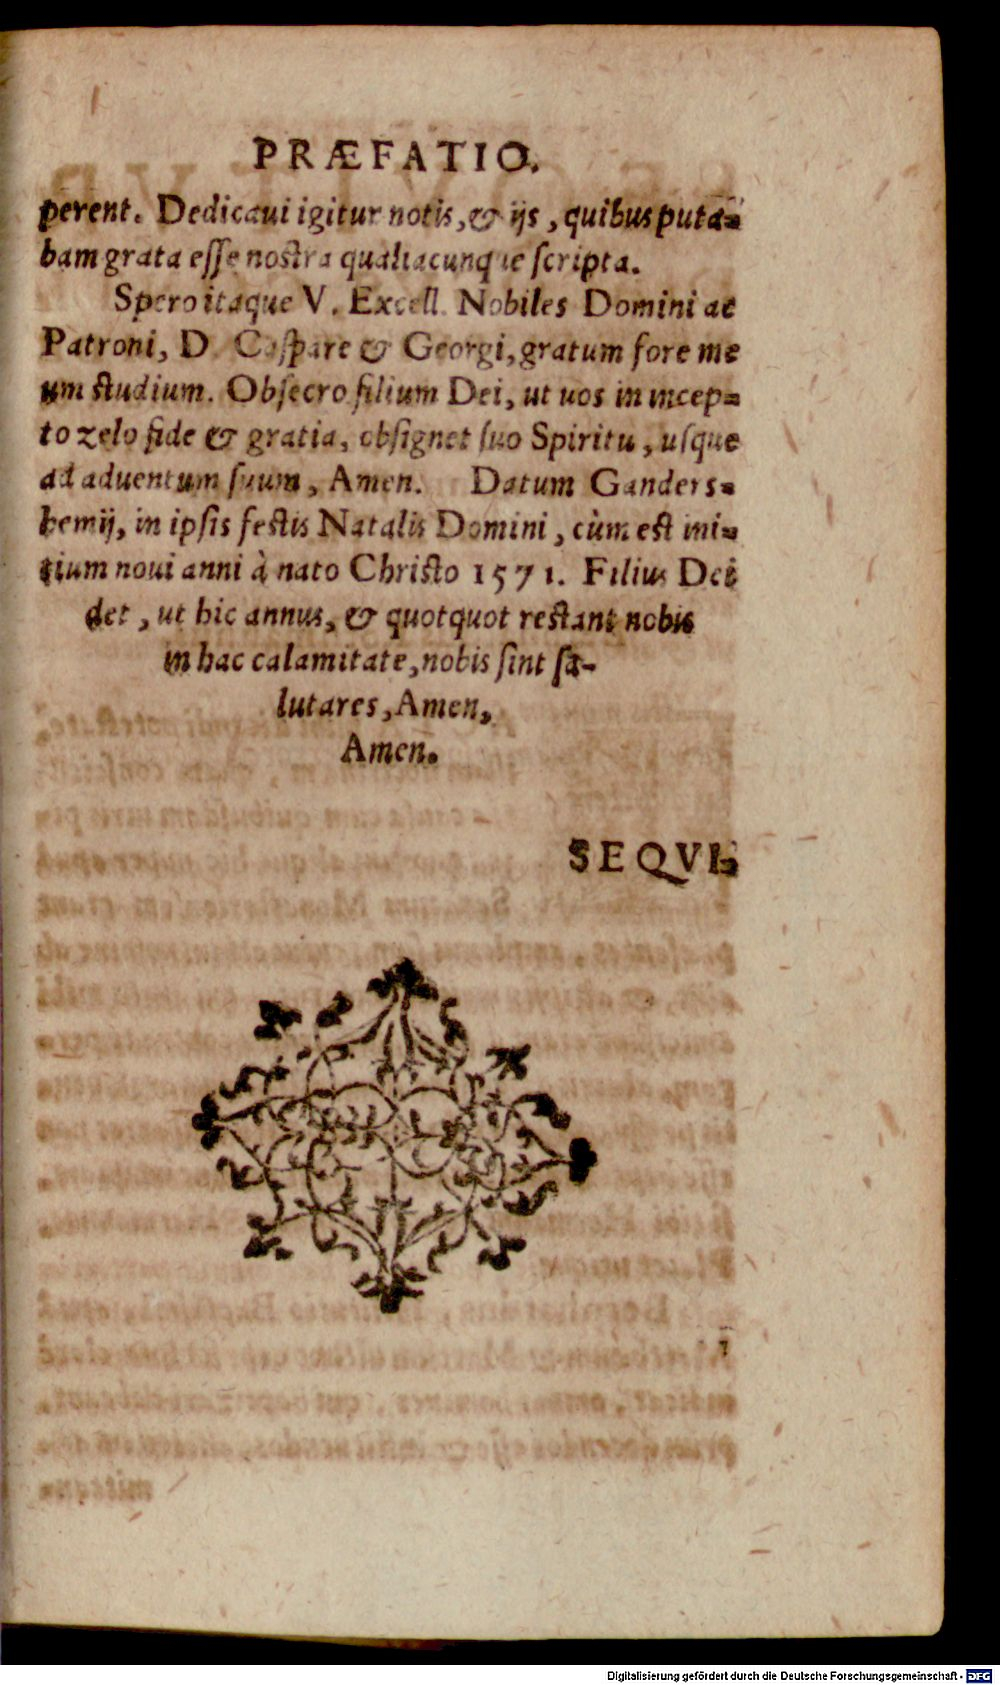 PRÆFATIO.
perent. Dedicaui igitur notis, & ijs, quibus puta-
bam grata esse nostra qualiacunque scripta.
Spero itaque V. Excell. Nobiles Domini ac
Patroni, D. Caspare & Georgi, gratum fore me
um studium. Obsecro filium Dei, ut uos in incep-
to zelo fide & gratia, obsignet suo Spiritu, usque
ad aduentum suum, Amen. Datum Ganders-
hemij, in ipsis festis Natalis Domini, cùm est ini-
tium noui anni à nato Christo 1571. Filius Dei
det, ut hic annus, & quotquot restant nobis
in hac calamitate, nobis sint sa-
lutares, Amen,
Amen.
SEQVI-
Digitalisierung gefördert durch die Deutsche Forschungsgemeinschaft - DFG